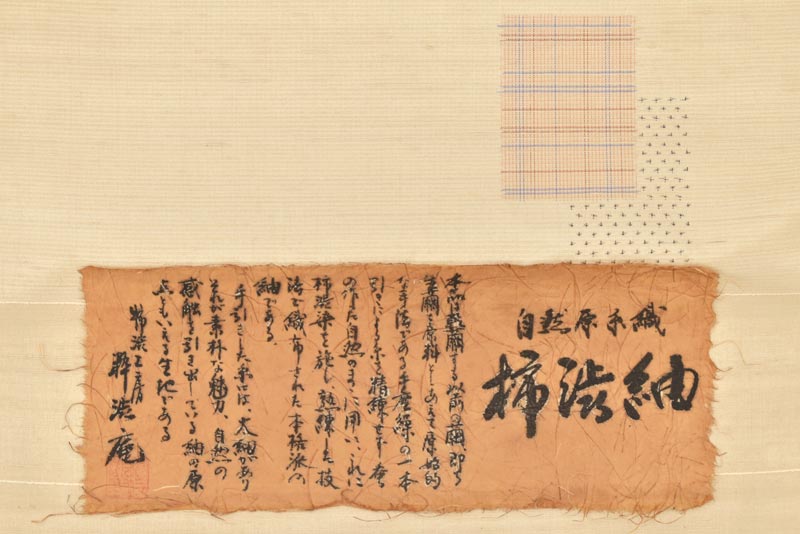 自然原糸織
柿渋紬
本品は乾繭する以前の繭、即ち
生繭を原料としあえて原始的
な手法である手座繰の一本
引きによる糸を精練せず蚕
の吐いた自然のままに用い、これに
柿渋染を施し、熟練した技
法で織布された本格派の
紬である。
手引きした糸には、太細があり
それが素朴な魅力、自然の
感触を引き出している紬の原
点ともいえる生地である
柿渋工房
渋庵